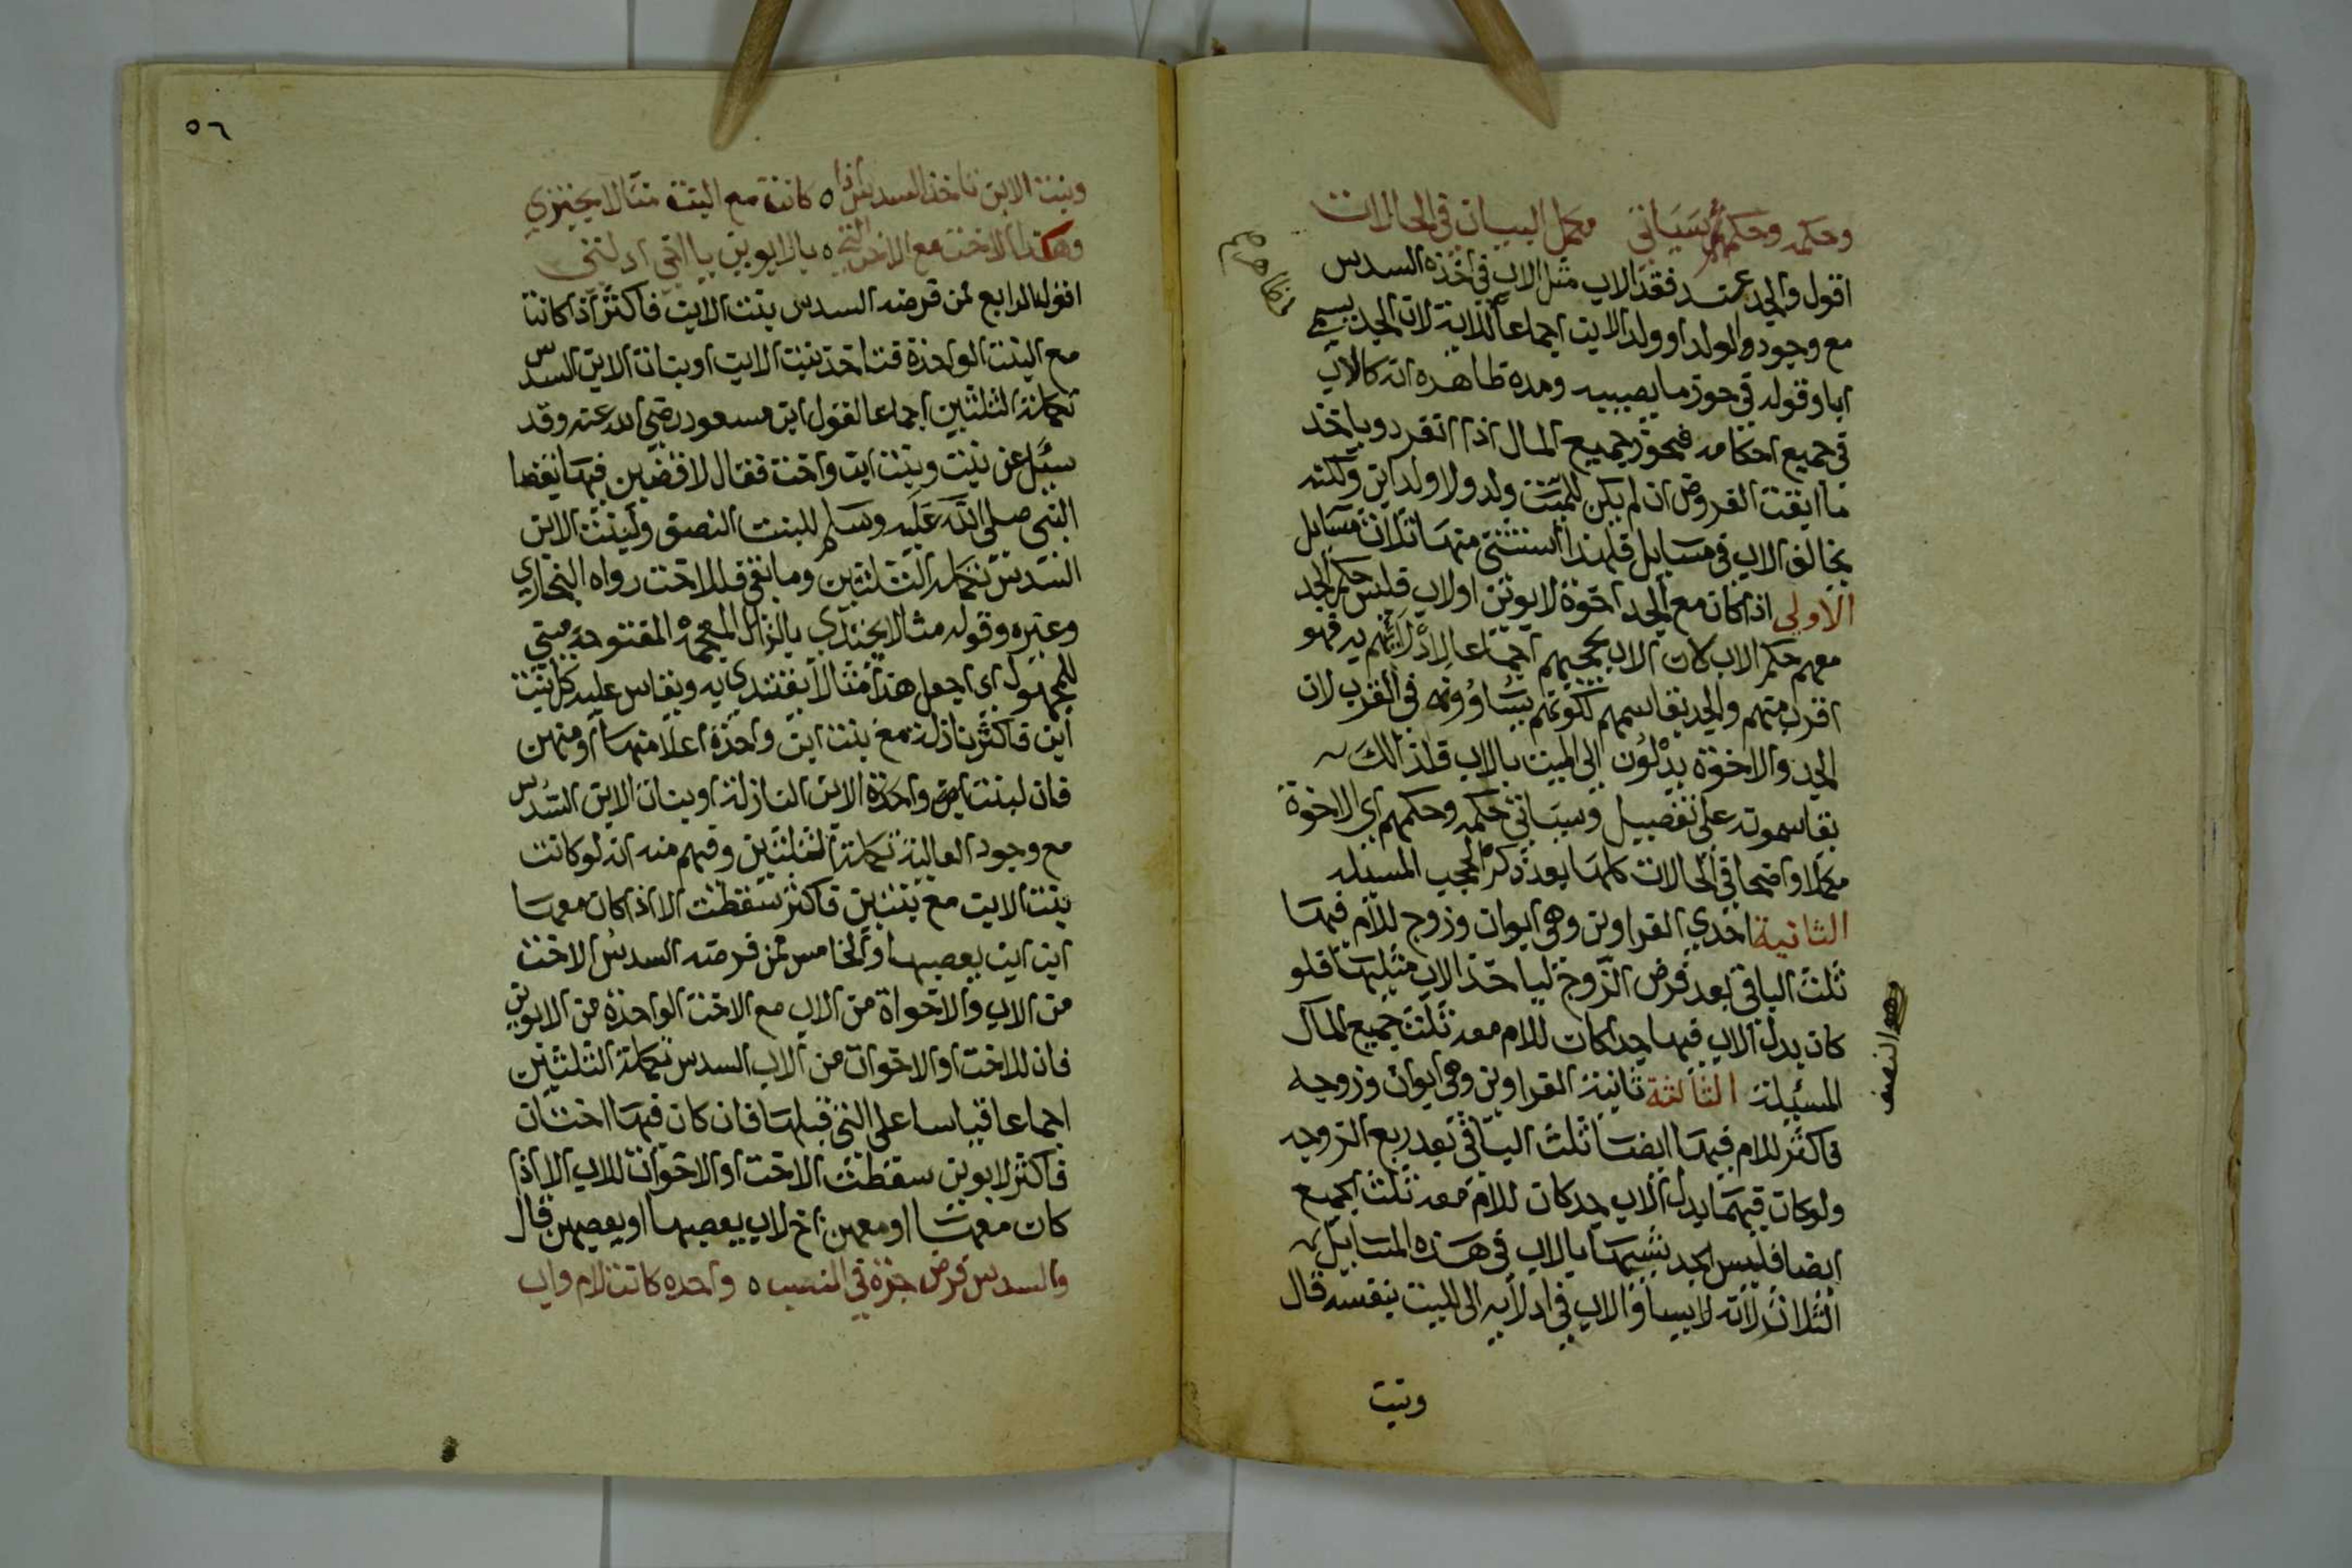 وحكمه وحكمهم سياتي مكمل البيان في الحالات
اقول والجد عند فقد الاب مثل الاب في اخذه السدس
مع وجود الولد او ولد الابن اجماعا للاية لان الجد يسمى
ابا وقوله في حوز ما يصيبه ومده ظاهره انه كالاب
في جميع احكامه فيحوز جميع المال اذا انفرد وياخذ
ما ابقت الفروض ان لم يكن للميت ولد ولا ولد ابن ولكنه
يخالف الاب في مسايل فلهذا استثنى منها ثلاث مسايل
الاولى اذا كان مع الجد اخوة لابوين او لاب فليس حكم الجد
معهم حكم الاب لان الاب يحجبهم اجماعا لادلائهم به فهو
اقرب منهم والجد يقاسمهم لكونهم يساوونه في القرب لان
الجد والاخوة يدلون الى الميت بالاب فلذالك
يقاسمونه على تفصيل وسياتي حكمه وحكمهم اي الاخوة
مكملا واضحا في الحالات كلها بعد ذكر الحجب المسيله
الثانية احدي الغراوين وهي ابوان وزوج للام فيها
ثلث الباقي بعد فرض الزوج لياخذ الاب مثليها فلو
كان بدل الاب فيها جد كان للام معه ثلث جميع المال
المسئلة الثالثة ثانية الغراوين وهي ابوان وزوجه
فاكثر للام فيها ايضا ثلث الباقي بعد ربع الزوجه
ولو كان فيهما بدل الاب جد كان للام معه ثلث الجميع
ايضا فليس الجد شبيها بالاب في هذه المسايل
الثلاث لانه لا يساو الاب في ادلائه الى الميت بنفسه قال
وبنت
وهو النصف
٥٦
وبنت الابن تاخذ السدس اذا ٥ كانت مع البنت مثالا يحتذي
وهكذا الاخت مع الاخت التي ٥ بالابوين يا اخي ادلت
اقول الرابع ممن فرضه السدس بنت الابن فاكثر اذا كانتا
مع البنت الواحدة فتاخذ بنت الابن او بنات الابن السدس
تكملة الثلثين اجماعا لقول ابن مسعود رضي الله عنه وقد
سئل عن بنت وبنت ابن واخت فقال لاقضين فيها بقضا
النبي صلى الله عليه وسلم للبنت النصف ولبنت الابن
السدس تكملة الثلثين وما بقي فللاخت رواه البخاري
وغيره وقوله مثالا يحتذي بالذال المعجمة المفتوحة مبني
للمجهول اي اجعل هذا مثالا يقتدي به ويقاس عليه كل بنت
ابن فاكثر نازلة مع بنت ابن واحدة اعلا منها او منهن
فان لبنت ابن واحدة الابن النازلة او بنات الابن السدس
مع وجود العالية تكملة الثلثين وفهم منه انه لو كانت
بنت الابن مع بنتين فاكثر سقطت الا اذا كان معها
ابن ابن يعصبها والخامس ممن فرضه السدس الاخت
من الاب والاخوات من الاب مع الاخت الواحدة من الابوين
فان للاخت او الاخوات من الاب السدس تكملة الثلثين
اجماعا قياسا على التي قبلها فان كان فيها اختان
فاكثر لابوين سقطت الاخت او الاخوات للاب الا اذا
كان معها او معهن اخ لاب يعصبها او يعصبهن قال
والسدس فرض جدة في النسب ٥ واحده كانت لام واب